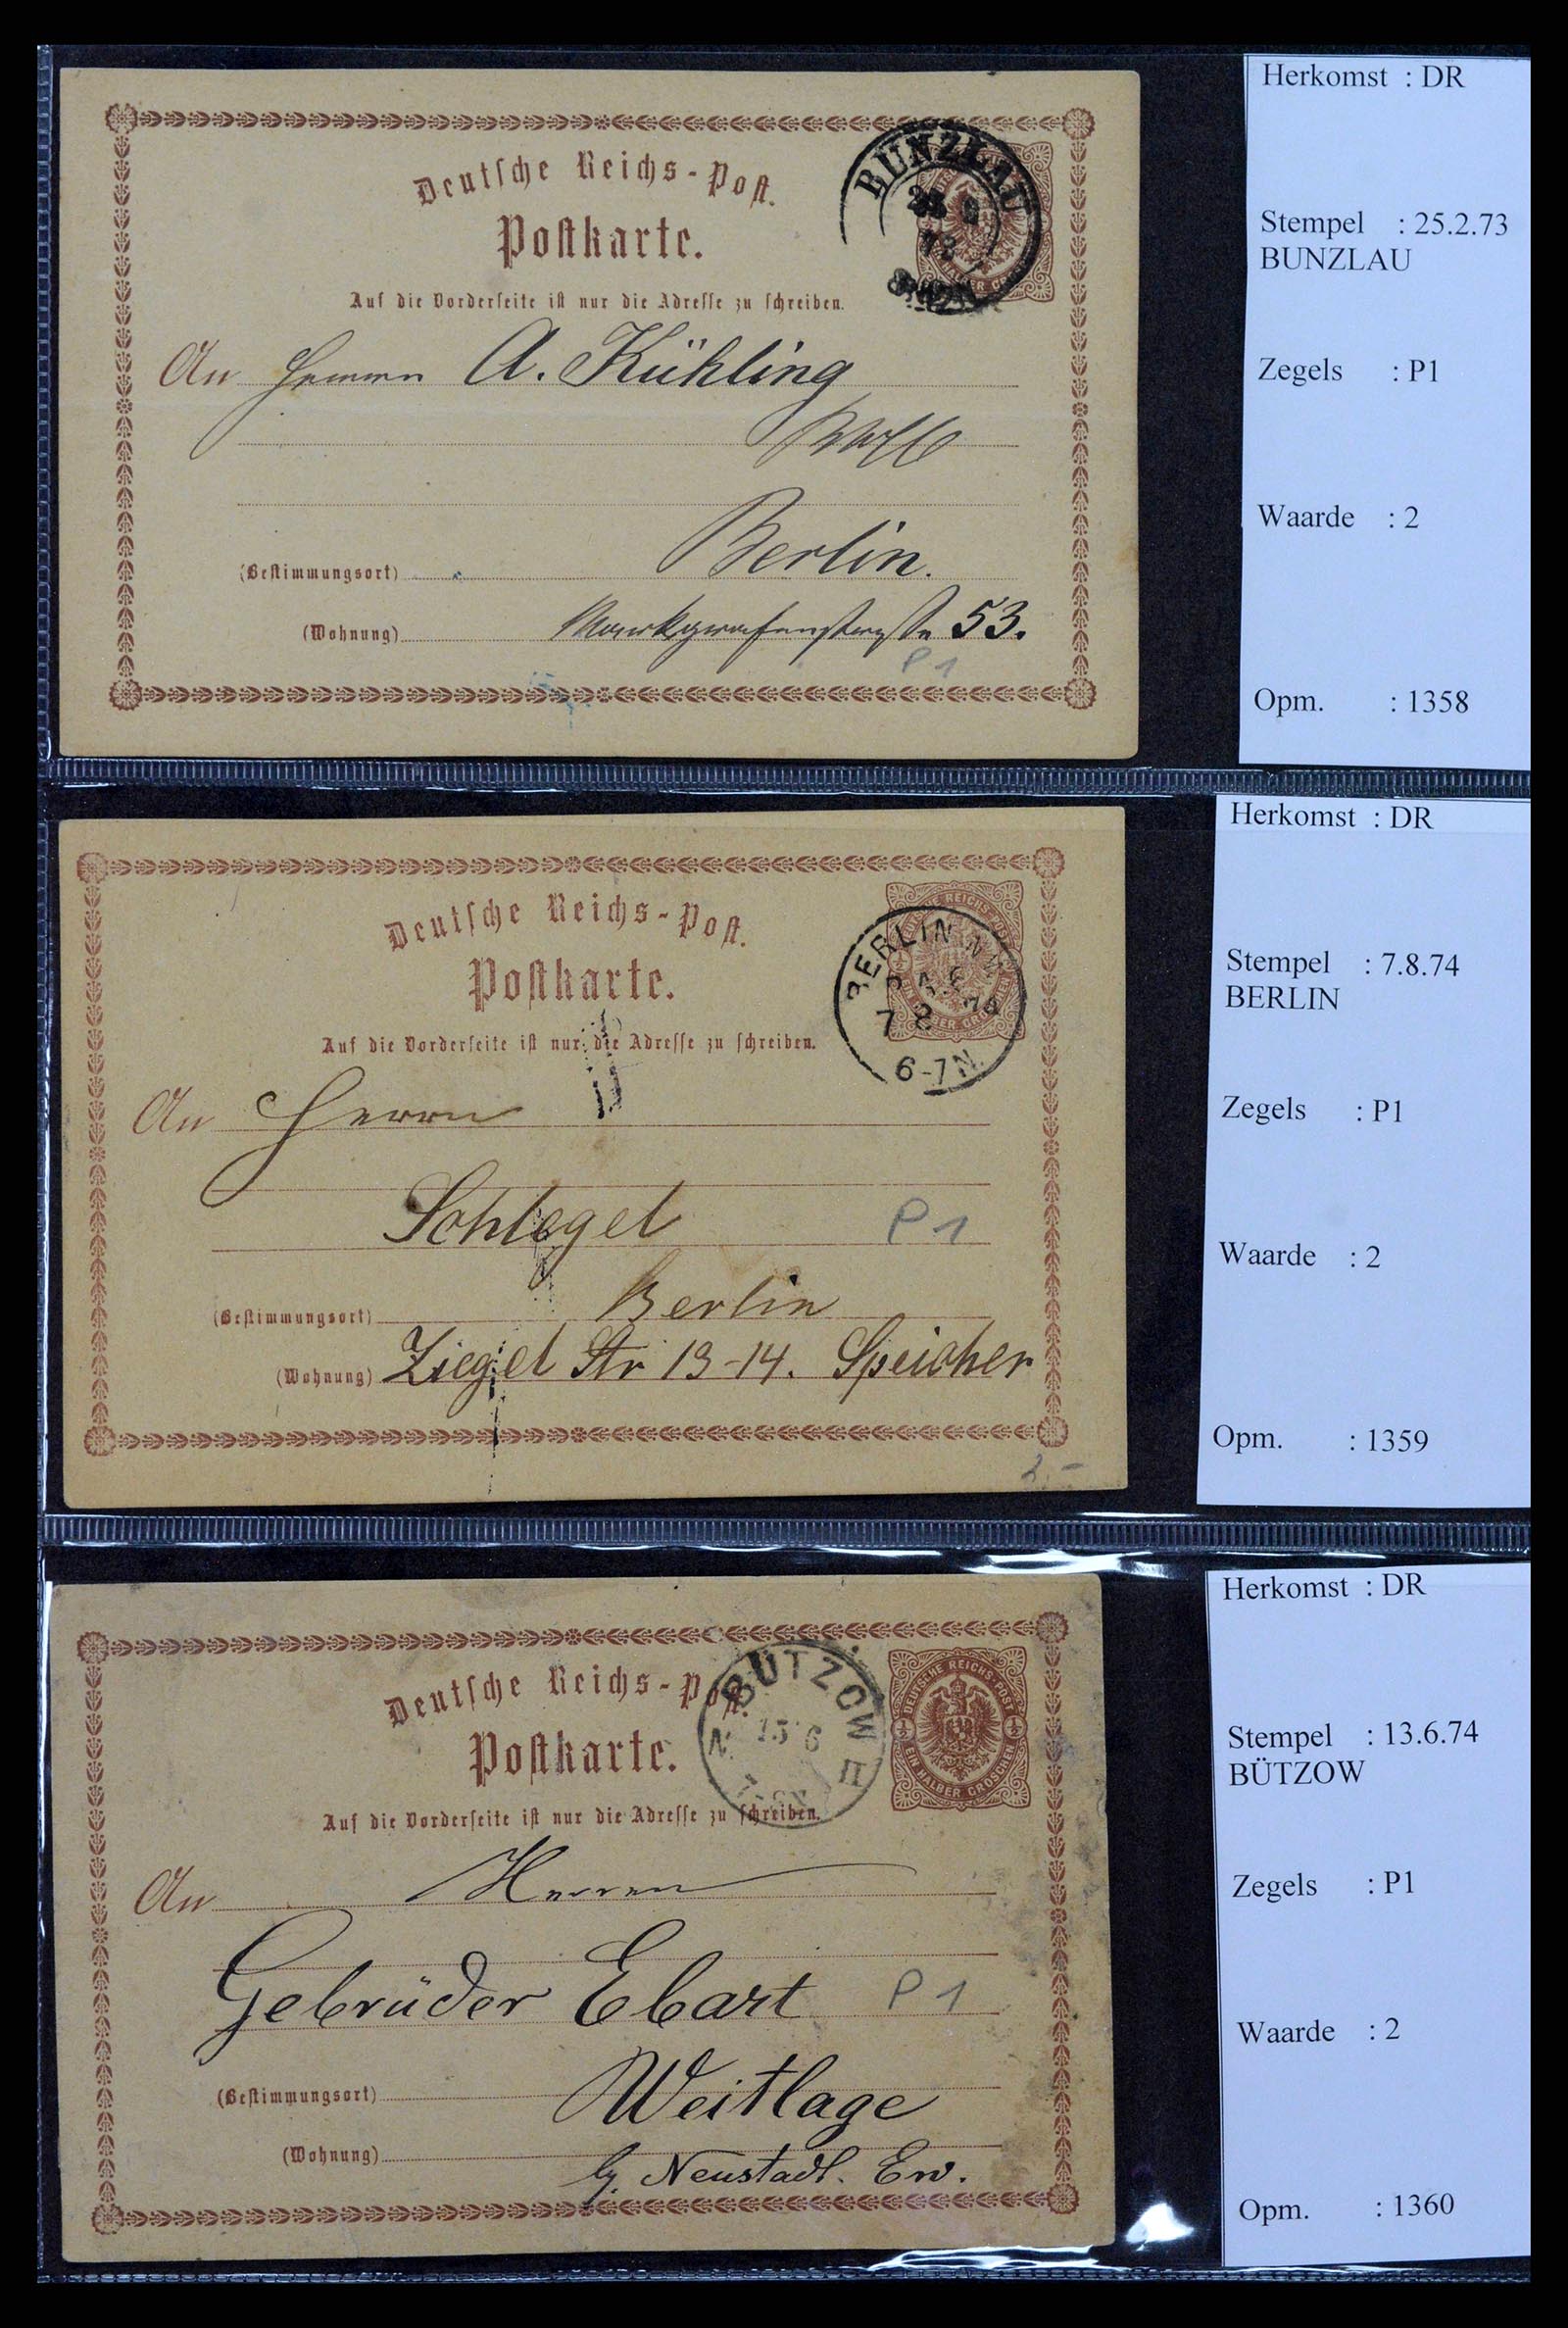 Deutsche Reichs-Post.
Postkarte.
Auf die Vorderseite ist nur die Adresse zu schreiben.
BUNZLAU
An Herrn A. Kühling
Berlin.
(Bestimmungsort)
(Wohnung) Markgrafenstraße 53.
P1
Herkomst : DR
Stempel : 25.2.73
BUNZLAU
Zegels : P1
Waarde : 2
Opm. : 1358
Deutsche Reichs-Post.
Postkarte.
Auf die Vorderseite ist nur die Adresse zu schreiben.
BERLIN N.W.
7 8 74
6-7N.
An Herrn
Schlegel
P1
Berlin
(Bestimmungsort)
(Wohnung) Ziegel Str 13-14. Speicher
2.-
Herkomst : DR
Stempel : 7.8.74
BERLIN
Zegels : P1
Waarde : 2
Opm. : 1359
Deutsche Reichs-Post.
Postkarte.
Auf die Vorderseite ist nur die Adresse zu schreiben.
BÜTZOW
N. 13 6 II
DEUTSCHE REICHS-POST
½ ½
EIN HALBER GROSCHEN
An Herren
Gebrüder Ebart
P1
(Bestimmungsort) Weitlage
(Wohnung)
b/. Neustadt. Ew.
Herkomst : DR
Stempel : 13.6.74
BÜTZOW
Zegels : P1
Waarde : 2
Opm. : 1360